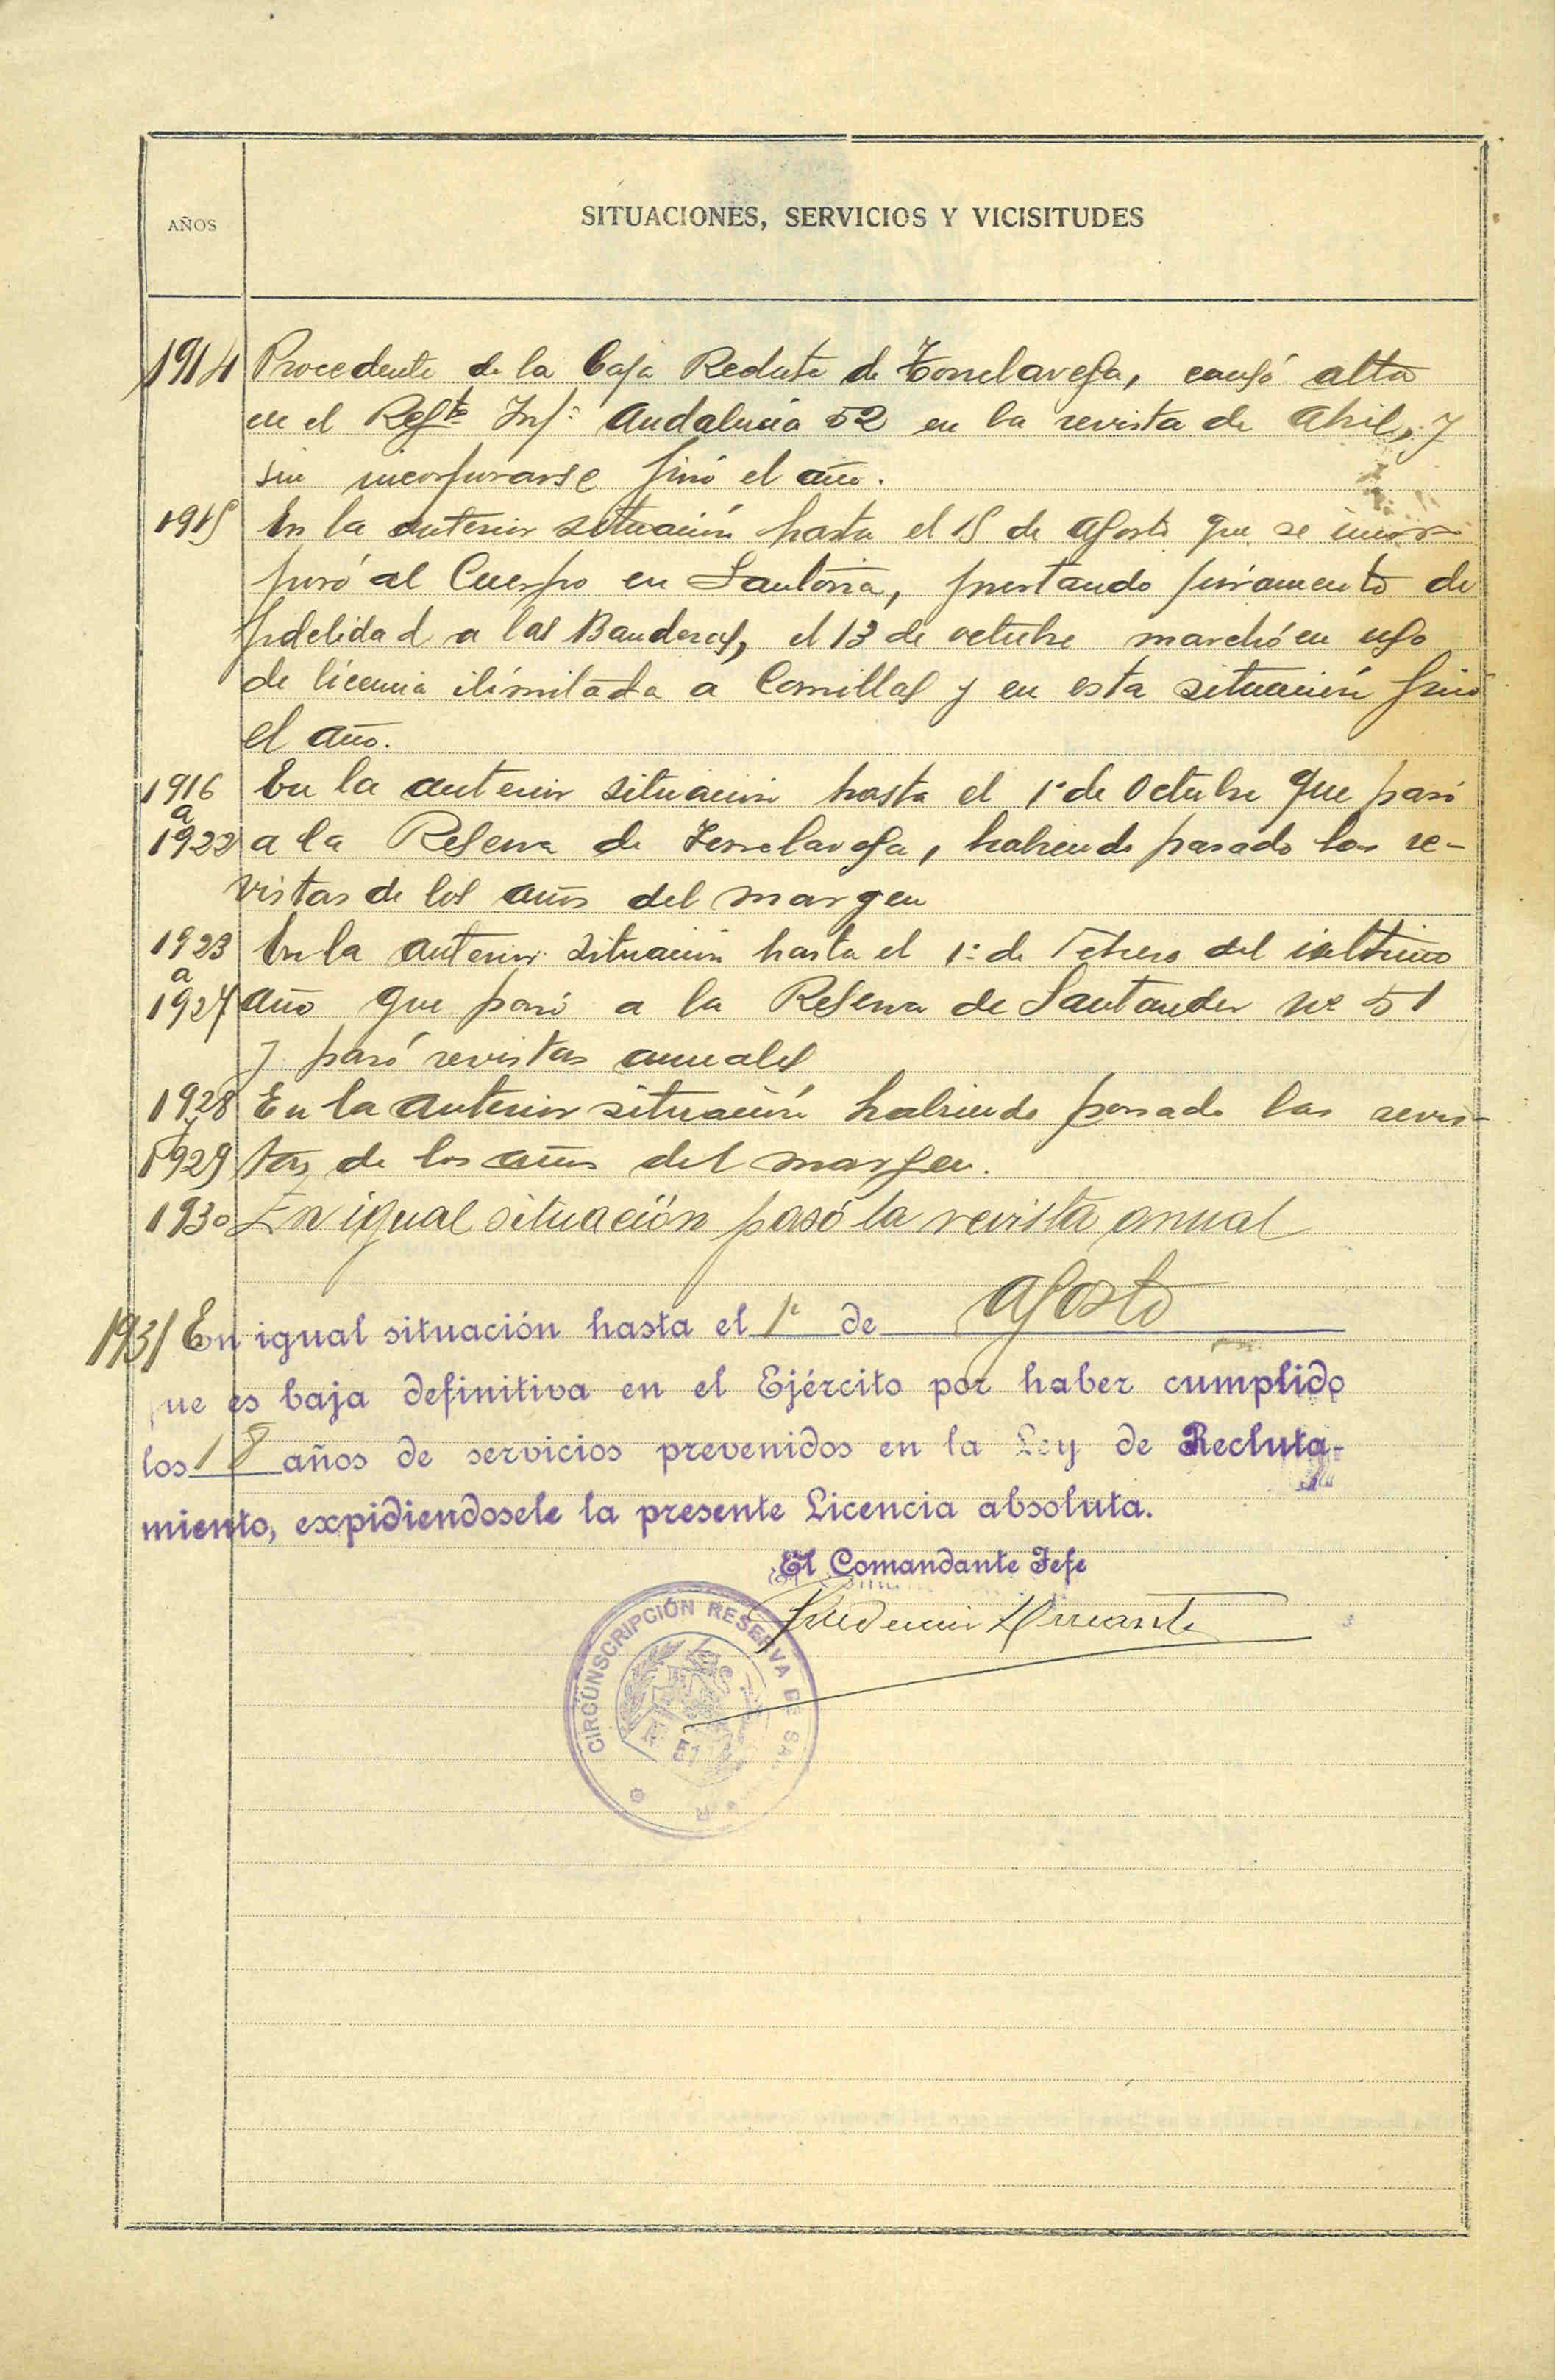 AÑOS
SITUACIONES, SERVICIOS Y VICISITUDES
1914 Procedente de la Caja Recluta de Torrelavega, causó alta
en el Regto Infª Andalucia 52 en la revista de Abril, y
sin incorporarse finó el año.
1915 En la anterior situación hasta el 15 de Agosto que se incor-
poró al Cuerpo en Santoña, prestando juramento de
fidelidad a las Banderas, el 13 de octubre marchó en uso
de licencia ilimitada a Comillas y en esta situación finó
el año.
1916 En la anterior situación hasta el 1º de Octubre que pasó
a
1922 a la Reserva de Torrelavega, habiendo pasado las re-
vistas de los años del margen
1923 En la anterior situación hasta el 1º de Febrero del ultimo
a
1927 año que pasó a la Reserva de Santander nº 51
y pasó revistas anuales
1928 En la anterior situación habiendo pasado las revis-
y
1929 tas de los años del margen.
1930 En igual situación pasó la revista anual
1931 En igual situación hasta el 1º de Agosto
que es baja definitiva en el Ejército por haber cumplido
los 18 años de servicios prevenidos en la Ley de Recluta-
miento, expidiendosele la presente Licencia absoluta.
El Comandante Jefe
CIRCUNSCRIPCIÓN RESERVA DE SAN
51